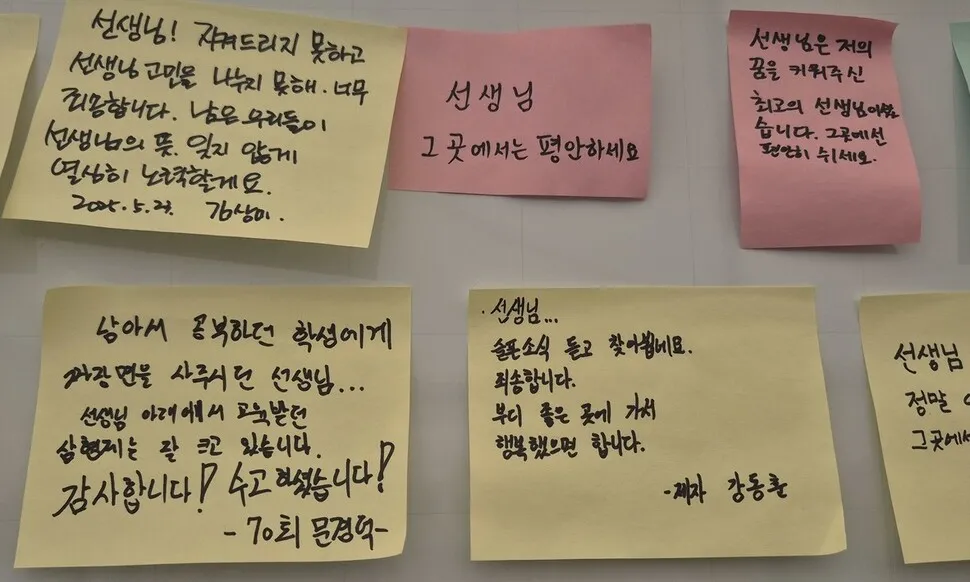 선생님! 지켜드리지 못하고
선생님 고민을 나누지 못해. 너무
죄송합니다. 남은 우리들이
선생님의 뜻. 잊지 않게
열심히 노력할게요.
2025.5.23. 김상미.
선생님
그 곳에서는 평안하세요
선생님은 저의
꿈을 키워주신
최고의 선생님이셨
습니다. 그곳에선
편안히 쉬세요.
남아서 공부하던 학생에게
짜장면을 사주시던 선생님...
선생님 아래에서 교육받던
삼형제는 잘 크고 있습니다.
감사합니다! 수고하셨습니다!
-70회 문경덕-
·선생님...
슬픈소식 듣고 찾아뵙네요.
죄송합니다.
부디 좋은 곳에 가셔
행복했으면 합니다.
-제자 강동훈
선생님
정말
그곳에서